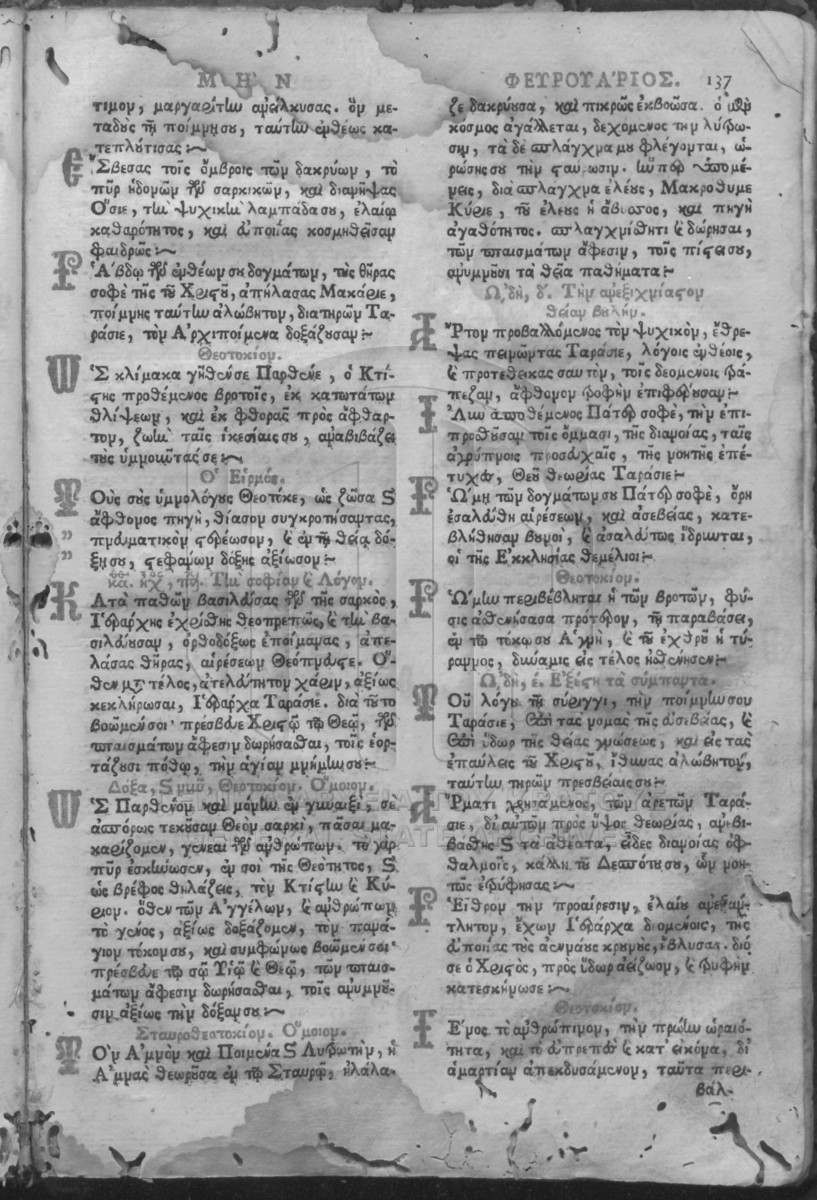 ΜΗΝ ΦΕΥΡΟΥΑΡΙΟΣ. 137
τιμον, μαργαρίτην ἀνείλκυσας. ὃν με-
ταδοὺς τῇ ποίμνῃ σου, ταύτην ἐνθέως κα-
τεπλούτισας :~
Ἔσβεσας τοῖς ὄμβροις τῶν δακρύων, τὸ
πῦρ ἡδονῶν τῶν σαρκικῶν, καὶ διανῆψας
Ὅσιε, τὴν ψυχικὴν λαμπάδα σου, ἐλαίῳ
καθαρότητος, καὶ εὐποιΐας κοσμηθεῖσαν
φαιδρῶς :~
Ῥάβδῳ τῶν ἐνθέων σου δογμάτων, τοὺς θῆρας
σοφὲ τῆς τοῦ Χριστοῦ, ἀπήλασας Μακάριε,
ποίμνης ταύτην ἀλώβητον, διατηρῶν Τα-
ράσιε, τὸν Ἀρχιποίμενα δοξάζουσαν :~
Θεοτοκίον.
Ὡς κλίμακα γῆθεν σε Παρθένε, ὁ Κτί-
στης προθέμενος βροτοῖς, ἐκ κατωτάτων
θλίψεων, καὶ ἐκ φθορᾶς πρὸς ἄφθαρ-
τον, ζωὴν ταῖς ἱκεσίαις σου, ἀναβιβάζει
τοὺς ὑμνοῦντάς σε :~
Ὁ Εἱρμός.
Τοὺς σοὺς ὑμνολόγους Θεοτόκε, ὡς ζῶσα καὶ
ἄφθονος πηγή, θίασον συγκροτήσαντας,
πνευματικὸν στερέωσον, καὶ ἐν τῇ θείᾳ δό-
ξῃ σου, στεφάνων δόξης ἀξίωσον :~
Κάθ. ἦχ, πλ. Τὴν σοφίαν καὶ Λόγον.
Κατὰ παθῶν βασιλεύσας τῶν τῆς σαρκὸς,
Ἱεράρχης ἐχρίσθης θεοπρεπῶς, καὶ τὴν βα-
σιλεύουσαν, ὀρθοδόξως ἐποίμανας, ἀπε-
λάσας θῆρας, αἱρέσεων Θεόπνευστε. Ὅ-
θεν μετὰ τέλος, ἀτελεύτητον χάριν, ἀξίως
κεκλήρωσαι, Ἱεράρχα Ταράσιε. διὰ τοῦτο
βοῶμέν σοι· πρέσβευε Χριστῷ τῷ Θεῷ, τῶν
πταισμάτων ἄφεσιν δωρήσασθαι, τοῖς ἑορ-
τάζουσι πόθῳ, τὴν ἁγίαν μνήμην σου :~
Δόξα, καὶ νῦν, Θεοτοκίον. Ὅμοιον.
Ὡς Παρθένον καὶ μόνην ἐν γυναιξὶ, σὲ
ἀσπόρως τεκοῦσαν Θεὸν σαρκὶ, πᾶσαι μα-
καρίζομεν, γενεαὶ τῶν ἀνθρώπων. τὸ γὰρ
πῦρ ἐσκήνωσεν, ἐν σοὶ τῆς Θεότητος, καὶ
ὡς βρέφος θηλάζεις, τὸν Κτίστην καὶ Κύ-
ριον. ὅθεν τῶν Ἀγγέλων, καὶ ἀνθρώπων
τὸ γένος, ἀξίως δοξάζομεν, τὸν πανά-
γιον τόκον σου, καὶ συμφώνως βοῶμέν σοι·
πρέσβευε τῷ σῷ Υἱῷ καὶ Θεῷ, τῶν πταισ-
μάτων ἄφεσιν δωρήσασθαι, τοῖς ἀνυμνοῦ-
σιν ἀξίως τὴν δόξαν σου :~
Σταυροθεοτοκίον. Ὅμοιον.
Τὸν Ἀμνὸν καὶ Ποιμένα καὶ Λυτρωτὴν, ἡ
Ἀμνὰς θεωροῦσα ἐν τῷ Σταυρῷ, ἠλάλα-
ζε δακρύουσα, καὶ πικρῶς ἐκβοῶσα. ὁ μὲν
κόσμος ἀγάλλεται, δεχόμενος τὴν λύτρω-
σιν, τὰ δὲ σπλάγχνα μου φλέγονται, ὁ-
ρώσης σου τὴν σταύρωσιν. ἣν περ ὑπομέ-
νεις, διὰ σπλάγχνα ἐλέους, Μακρόθυμε
Κύριε, τοῦ ἐλέους ἡ ἄβυσσος, καὶ πηγὴ
ἀγαθότητος. σπλαγχνίσθητι καὶ δώρησαι,
τῶν πταισμάτων ἄφεσιν, τοῖς πίστει σου,
ἀνυμνοῦσι τὰ θεῖα παθήματα :~
ᾨδὴ, δ'. Τὴν ἀνεξιχνίαστον
θείαν βουλήν.
Ἄρτον προβαλλόμενος τὸν ψυχικὸν, ἔθρε-
ψας πεινῶντας Ταράσιε, λόγοις ἐνθέοις,
καὶ προτέθεικας σαυτὸν, τοῖς δεομένοις τρά-
πεζαν, ἄφθονον τροφὴν ἐπιφέρουσαν :~
Ὕλην ἀποθέμενος Πάτερ σοφὲ, τὴν ἐπι-
προσθοῦσαν τοῖς ὄμμασι, τῆς διανοίας, ταῖς
ἀγρύπνοις προσευχαῖς, τῆς νοητῆς ἐπέ-
τυχες, Θεοῦ θεωρίας Ταράσιε :~
Ῥώμῃ τῶν δογμάτων σου Πάτερ σοφὲ, ὄρη
ἐσαλεύθη αἱρέσεων, καὶ ἀσεβείας, κατε-
βλήθησαν βουνοὶ, καὶ ἀσαλεύτως ἵδρυνται,
οἱ τῆς Ἐκκλησίας θεμέλιοι :~
Θεοτοκίον.
Ῥώμην περιβέβληται ἡ τῶν βροτῶν, φύ-
σις ἀσθενήσασα πρότερον, τῇ παραβάσει,
ἐν τῷ τόκῳ σου Ἁγνὴ, καὶ τοῦ ἐχθροῦ ἡ τύ-
ραννος, δύναμις εἰς τέλος ἠσθένησεν :~
ᾨδὴ, ε. Ἐξέστη τὰ σύμπαντα.
Τοῦ λόγου τῇ σύριγγι, τὴν ποίμνην σου
Ταράσιε, ἐπὶ τὰς νομὰς τῆς εὐσεβείας, καὶ
ἐπὶ ὕδωρ τῆς θείας γνώσεως, καὶ εἰς τὰς
ἐπαύλεις τοῦ Χριστοῦ, ἴθυνας ἀλώβητον,
ταύτην τηρῶν πρεσβείαις σου :~
Ἅρματι χρησάμενος, τῶν ἀρετῶν Ταρά-
σιε, δι' αὐτῶν πρὸς ὕψος θεωρίας, ἀνεβι-
βάσθης καὶ τὰ ἀθέατα, εἶδες διανοίας ὀφ-
θαλμοῖς, κάλλη τοῦ Δεσπότου σου, ὧν νοη-
τῶς ἐτρύφησας :~
Ῥεῖθρον τὴν προαίρεσιν, ἐλαίου ἀνεξάν-
τλητον, ἔχων Ἱεράρχα δεομένοις, τῆς
εὐποιΐας τοὺς ἀεννάους κρουνοὺς, ἔβλυσας. διό
σε ὁ Χριστὸς, πρὸς ὕδωρ ἀείζωον, καὶ τρυφὴν
κατεσκήνωσε :~
Θεοτοκίον.
Γένος τὸ ἀνθρώπινον, τὴν πρώτην ὡραιό-
τητα, καὶ τὸ εὐπρεπὲς καὶ κατ' εἰκόνα, δι'
ἁμαρτίαν ἀπεκδυσάμενον, ταῦτα περι-
βάλ-